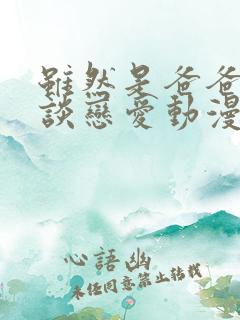 雖然是爸爸
談戀愛動漫
心語幽
未經同意禁止轉載